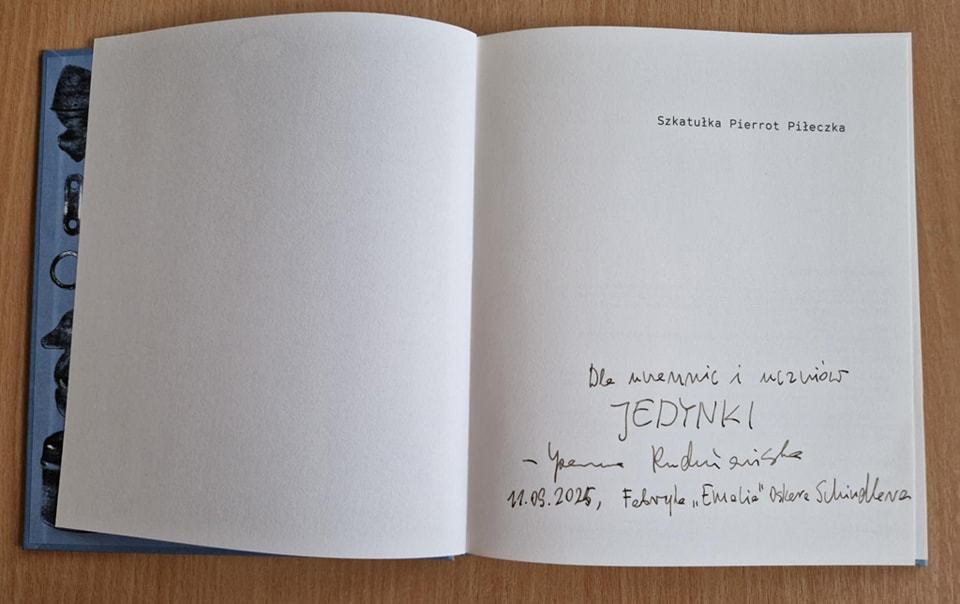 Szkatułka Pierrot Piłeczka
Dla uczennic i uczniów
JEDYNKI
– Joanna Rudniańska
11.09.2025, Fabryka „Emalia” Oskara Schindlera